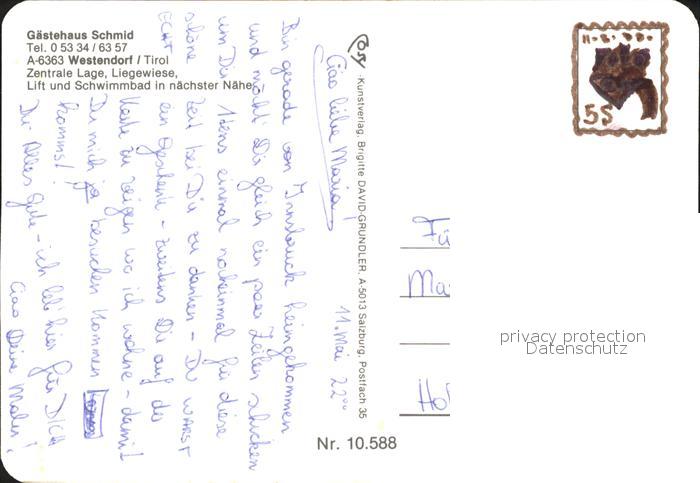 Gästehaus Schmid
Tel. 0 53 34 / 63 57
A-6363 Westendorf / Tirol
Zentrale Lage, Liegewiese,
Lift und Schwimmbad in nächster Nähe
Cosy
Kunstverlag, Brigitte DAVID-GRÜNDLER, A-5013 Salzburg, Postfach 35
11. Mai 22⁰⁰
Ciao liebe Maria,
Bin gerade von Innsbruck heimgekommen
und möcht Dir gleich ein paar Zeilen schicken
um Dir 1tens einmal nocheinmal für diese
schöne Zeit bei Dir zu danken - Du WARST
ECHT ein Geschenk - zweitens Dir auf der
Karte zu zeigen wo ich wohne - damit
Du mich ja besuchen kommen
kommst!
Dir Alles Gute - ich leb' hier für DICH
Ciao Deine
Nr. 10.588
5S
Fü
Ma
privacy protection
Datenschutz